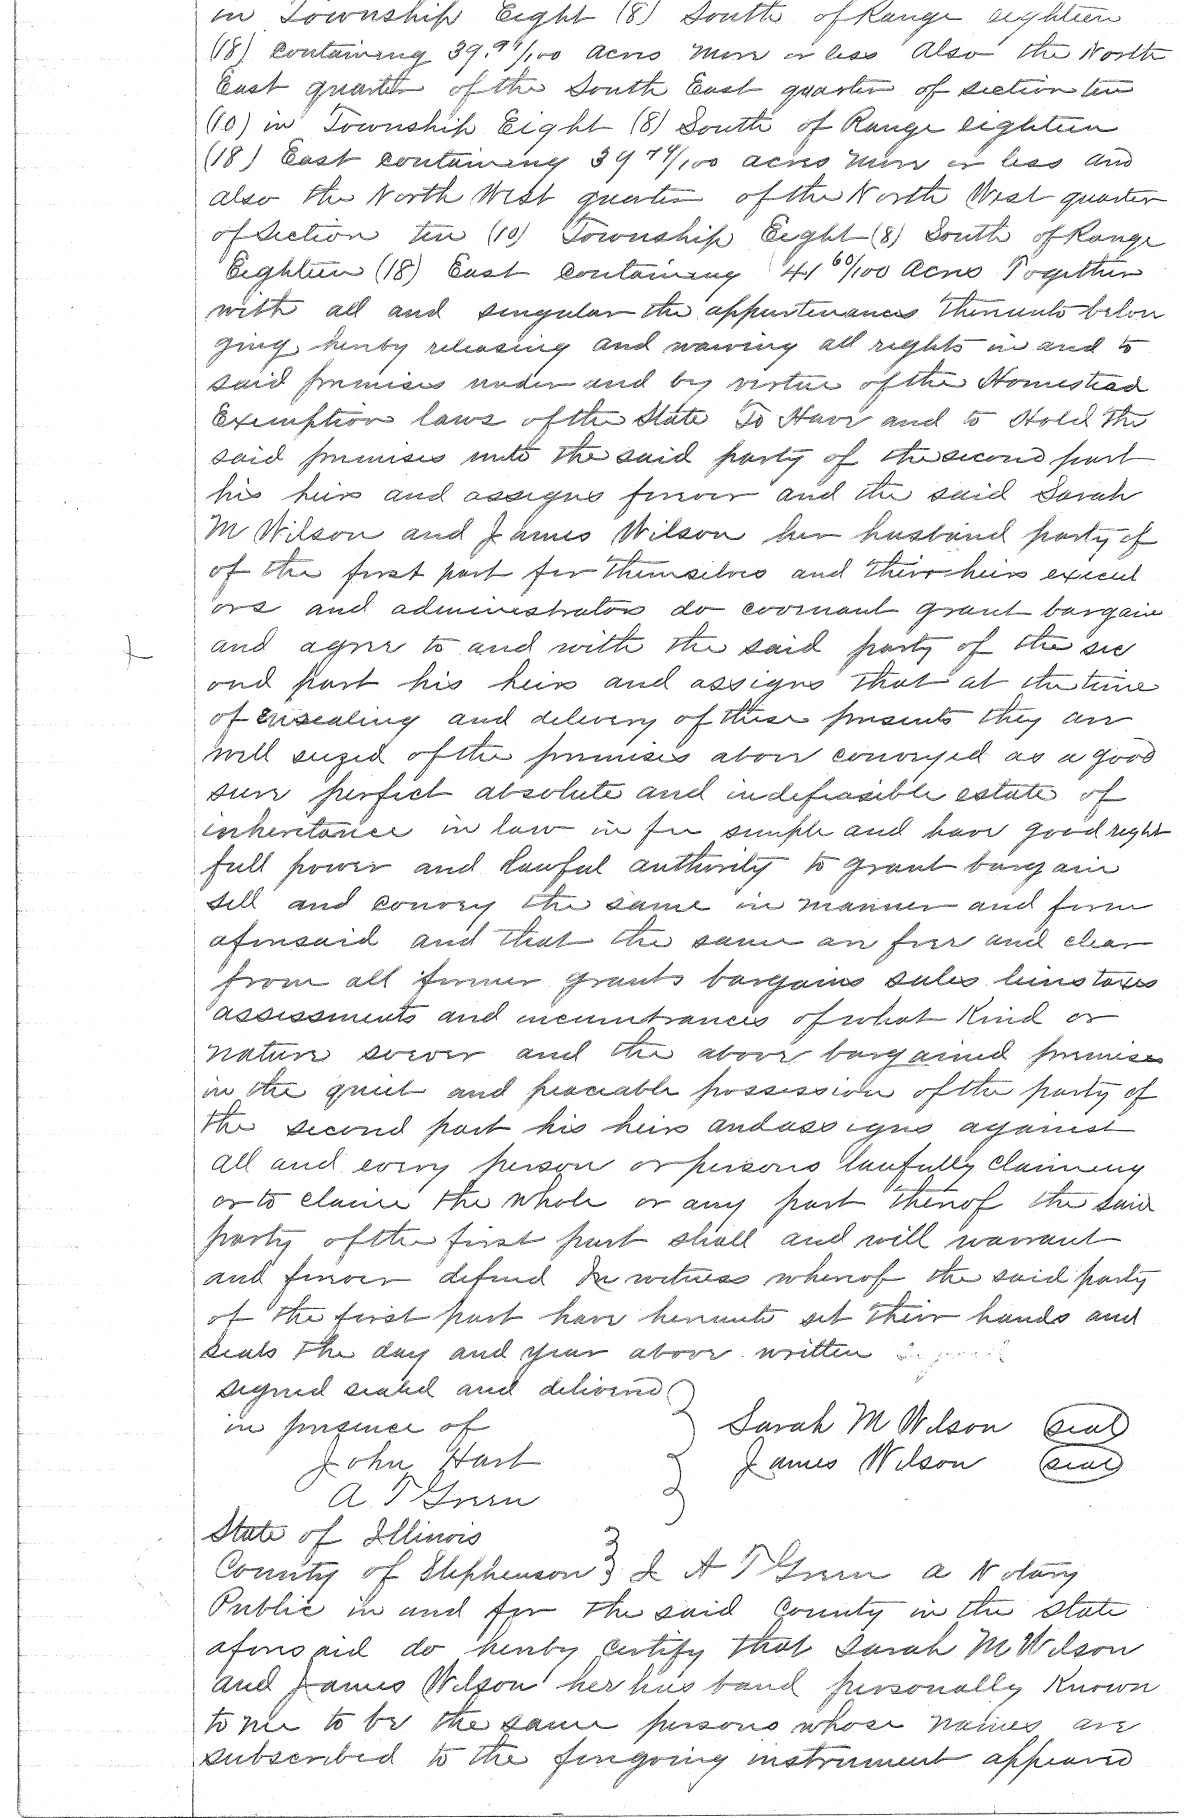 in Township Eight (8) South of Range eighteen
(18) containing 39.97/100 acres more or less Also the North
East quarter of the South East quarter of section ten
(10) in Township Eight (8) South of Range eighteen
(18) East containing 39 74/100 acres more or less and
also the North West quarter of the North West quarter
of Section ten (10) Township Eight (8) South of Range
Eighteen (18) East containing 41 60/100 acres Together
with all and singular the appurtenances thereunto belon
ging hereby releasing and waiving all rights in and to
said premises under and by virtue of the Homestead
Exemption laws of the State To Have and to Hold the
said premises unto the said party of the second part
his heirs and assigns forever and the said Sarah
M Wilson and James Wilson her husband party of
of the first part for themselves and their heirs execut
ors and administrators do covenant grant bargain
and agree to and with the said party of the sec
ond part his heirs and assigns that at the time
of ensealing and delivery of these presents they are
well seized of the premises above conveyed as a good
sure perfect absolute and indefeasible estate of
inheritance in law in fee simple and have good right
full power and lawful authority to grant bargain
sell and convey the same in manner and form
aforesaid and that the same are free and clear
from all former grants bargains sales leins taxes
assessments and incumbrances of what Kind or
nature soever and the above bargained premises
in the quiet and peaceable possession of the party of
the second part his heirs and assigns against
all and every person or persons lawfully claiming
or to claim the whole or any part thereof the said
party of the first part shall and will warrant
and forever defend In witness whereof the said party
of the first part have hereunto set their hands and
seals the day and year above written
signed sealed and delivered
in presence of Sarah M Wilson (seal)
John Hart James Wilson (seal)
A T Green
State of Illinois
County of Stephenson } I A T Green a Notary
Public in and for the said County in the state
aforesaid do hereby certify that Sarah M Wilson
and James Wilson her husband personally Known
to me to be the same persons whose names are
subscribed to the foregoing instrument appeared